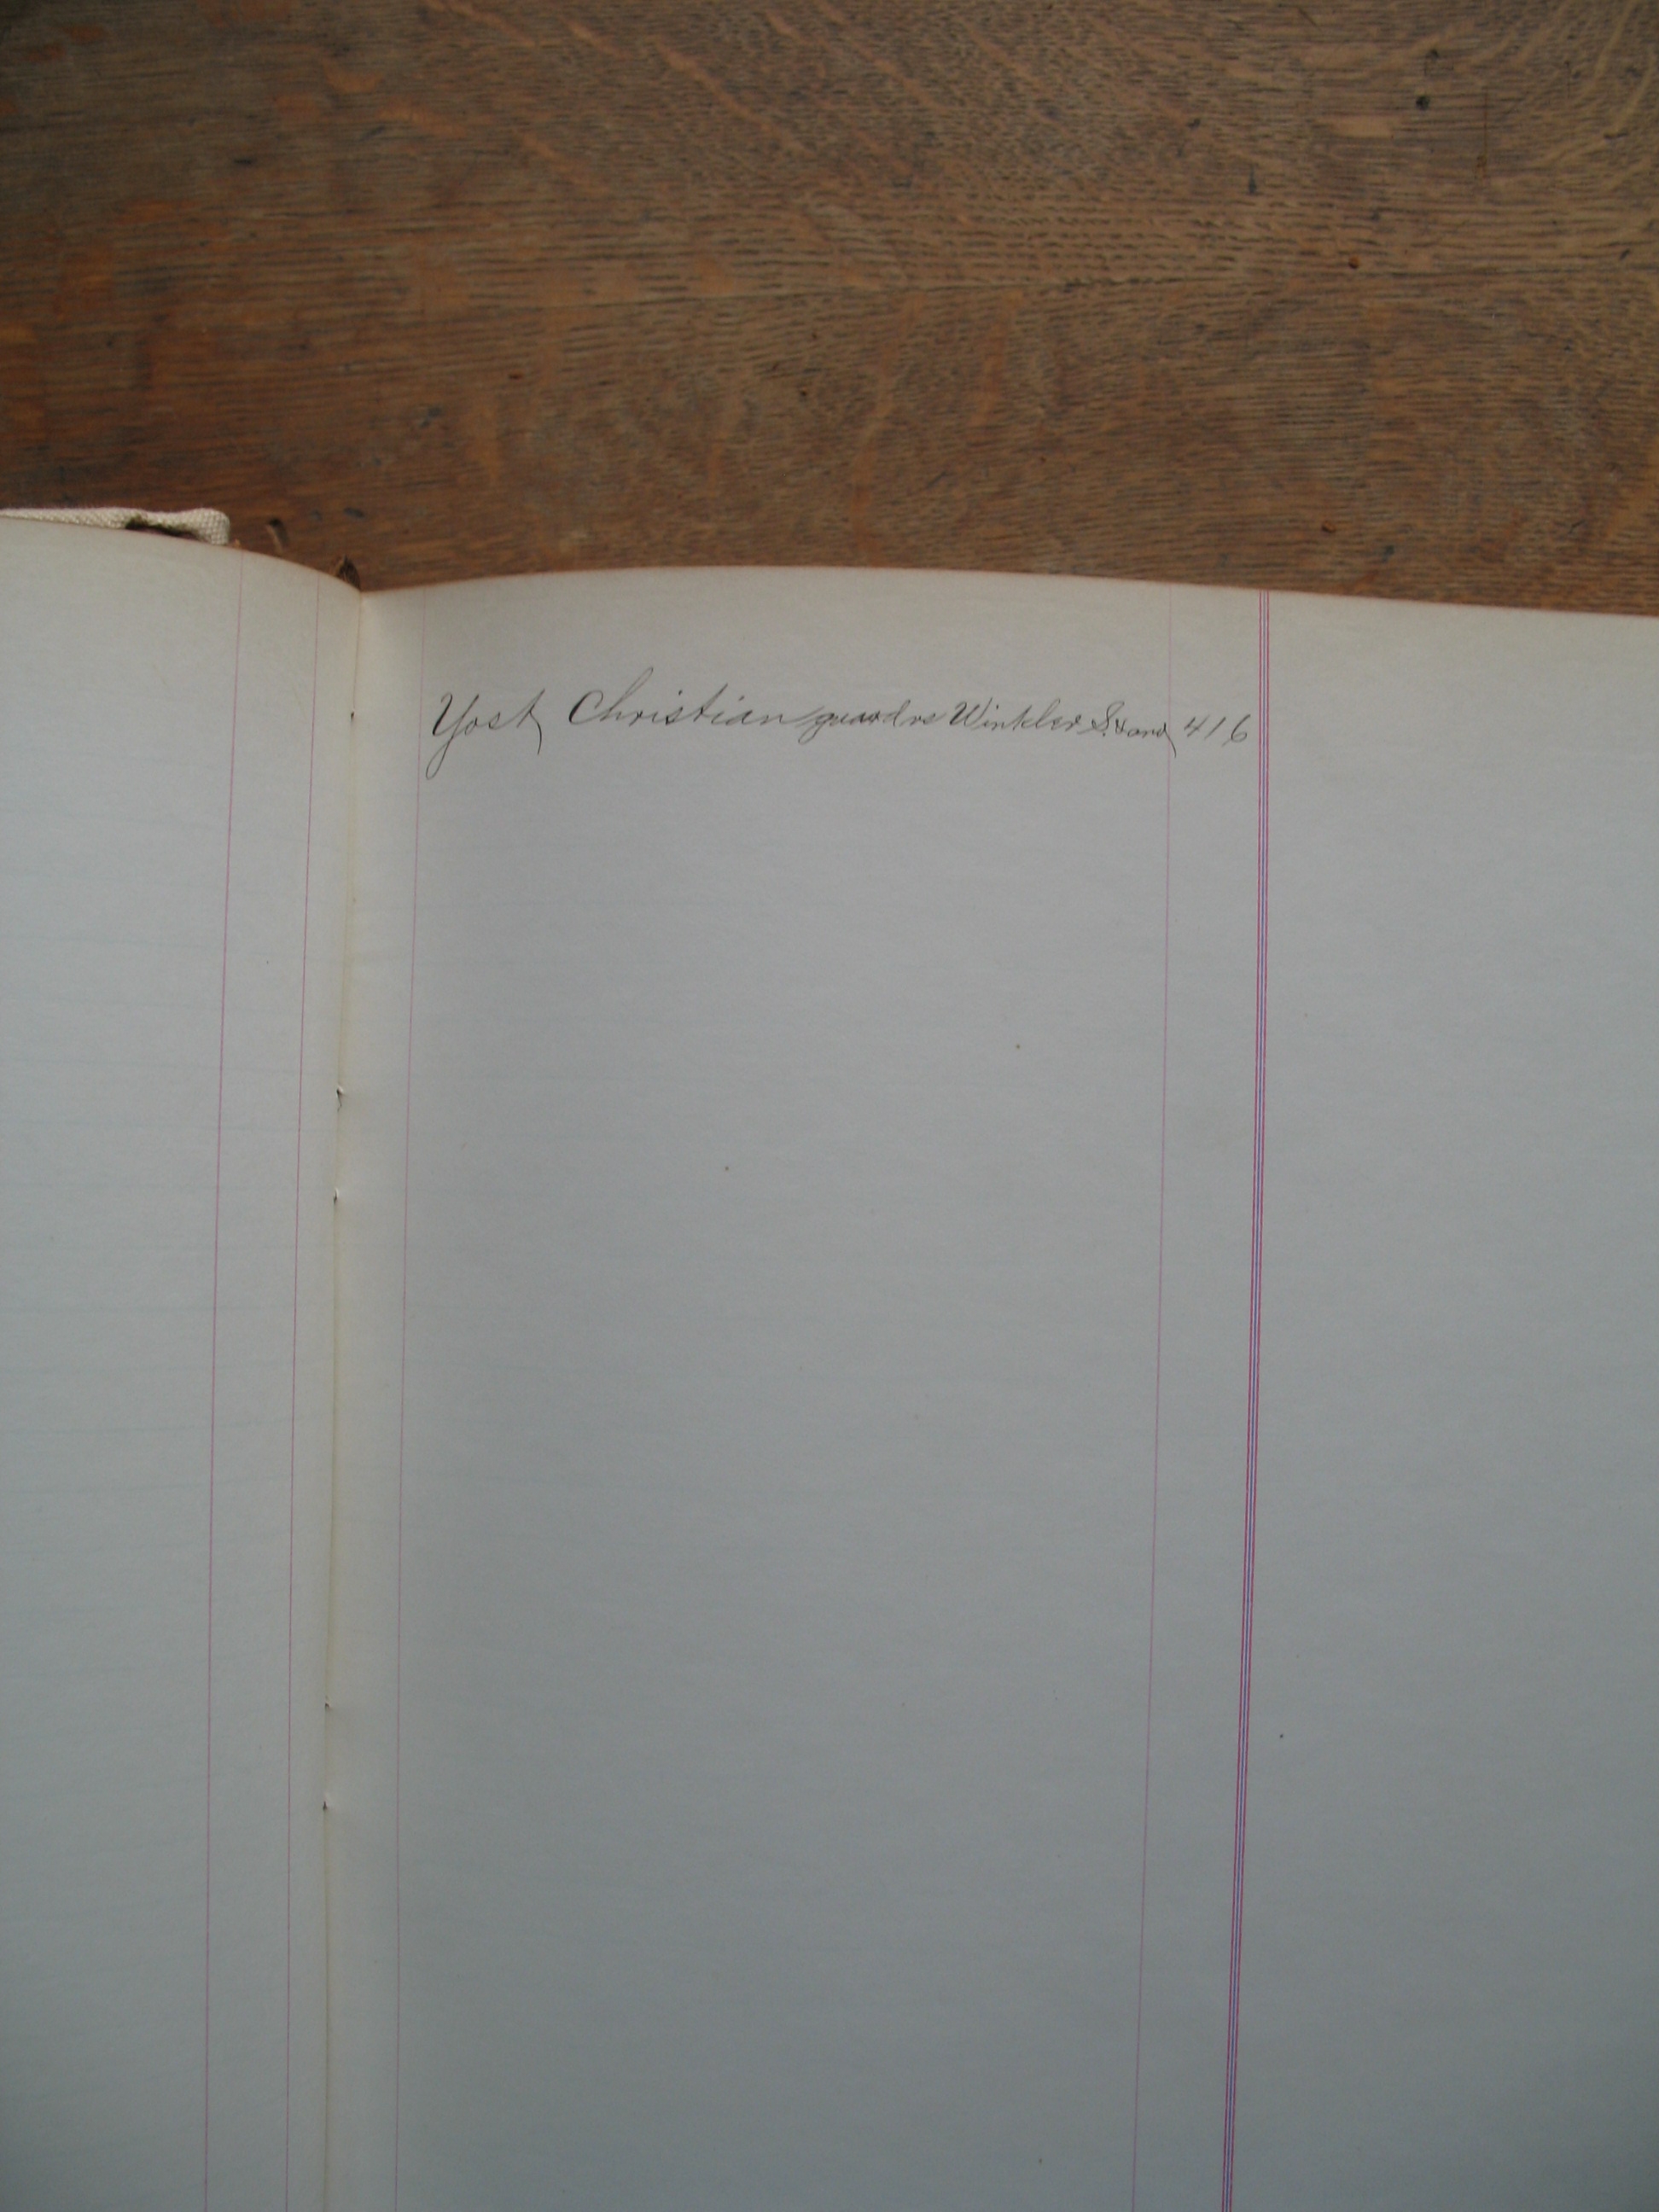 Yost Christian guard vs Winkler S. & ano 416